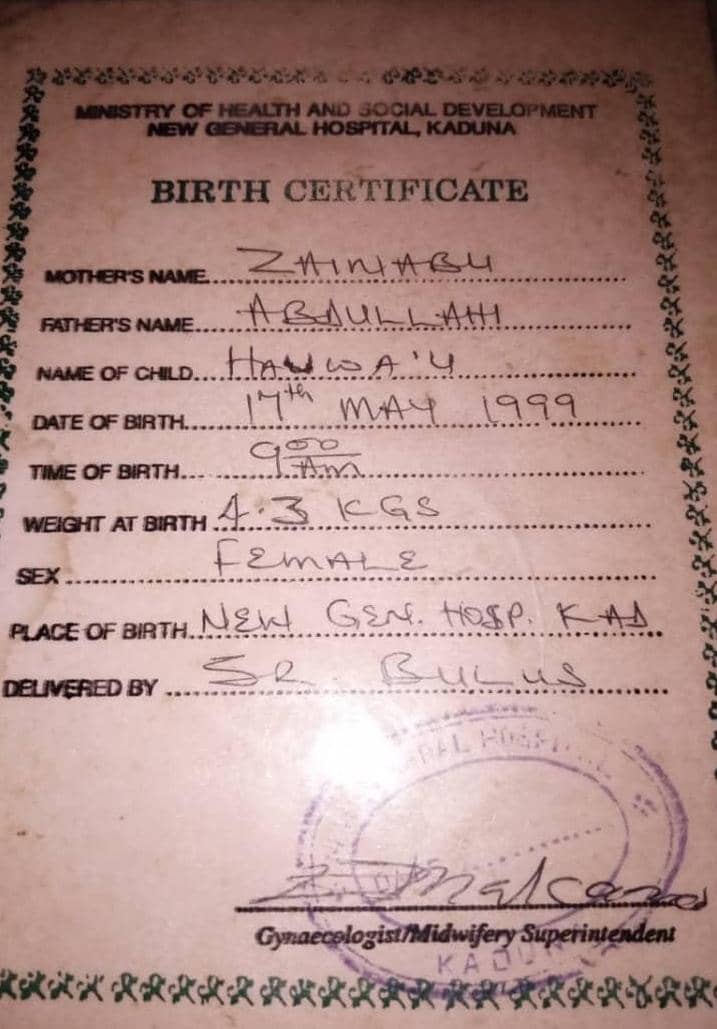 MINISTRY OF HEALTH AND SOCIAL DEVELOPMENT
NEW GENERAL HOSPITAL, KADUNA
BIRTH CERTIFICATE
MOTHER'S NAME ZAINABU
FATHER'S NAME ABDULLAHI
NAME OF CHILD HAUWA'U
DATE OF BIRTH 17th MAY 1999
TIME OF BIRTH 9 00 AM
WEIGHT AT BIRTH 4.3 KGS
SEX FEMALE
PLACE OF BIRTH NEW GEN. HOSP. KAD
DELIVERED BY SR. BULUS
Gynaecologist/Midwifery Superintendent
KADUNA